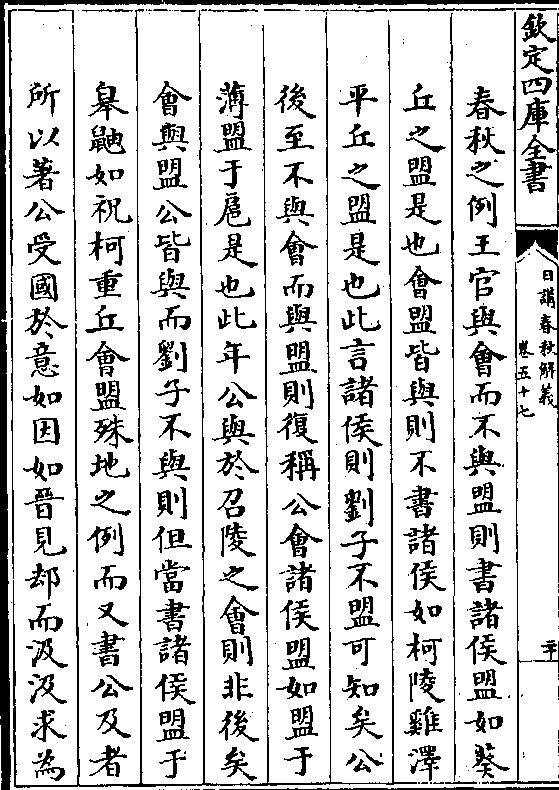 欽定四庫全書
日講春秋解義
卷五十七
春秋之例王官與會而不與盟則書諸侯盟如葵
丘之盟是也會盟皆與則不書諸侯如柯陵雞澤
平丘之盟是也此言諸侯則劉子不盟可知矣公
後至不與會而與盟則復稱公會諸侯盟如盟于
薄盟于扈是也此年公與於召陵之會則非後矣
會與盟公皆與而劉子不與則但當書諸侯盟于
臯鼬如祝柯重丘會盟殊地之例而又書公及者
所以著公受國於意如因如晉見却而汲汲求為